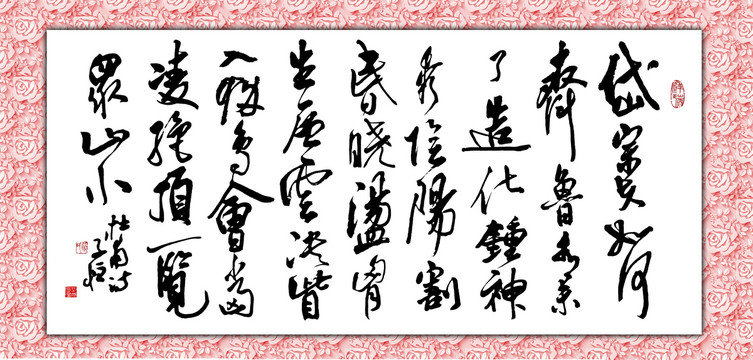 岱宗夫如何
齊魯青未
了造化鍾神
秀陰陽割
昏曉盪胸
生層雲決眥
入歸鳥會當
凌絕頂一覽
眾山小
杜甫詩